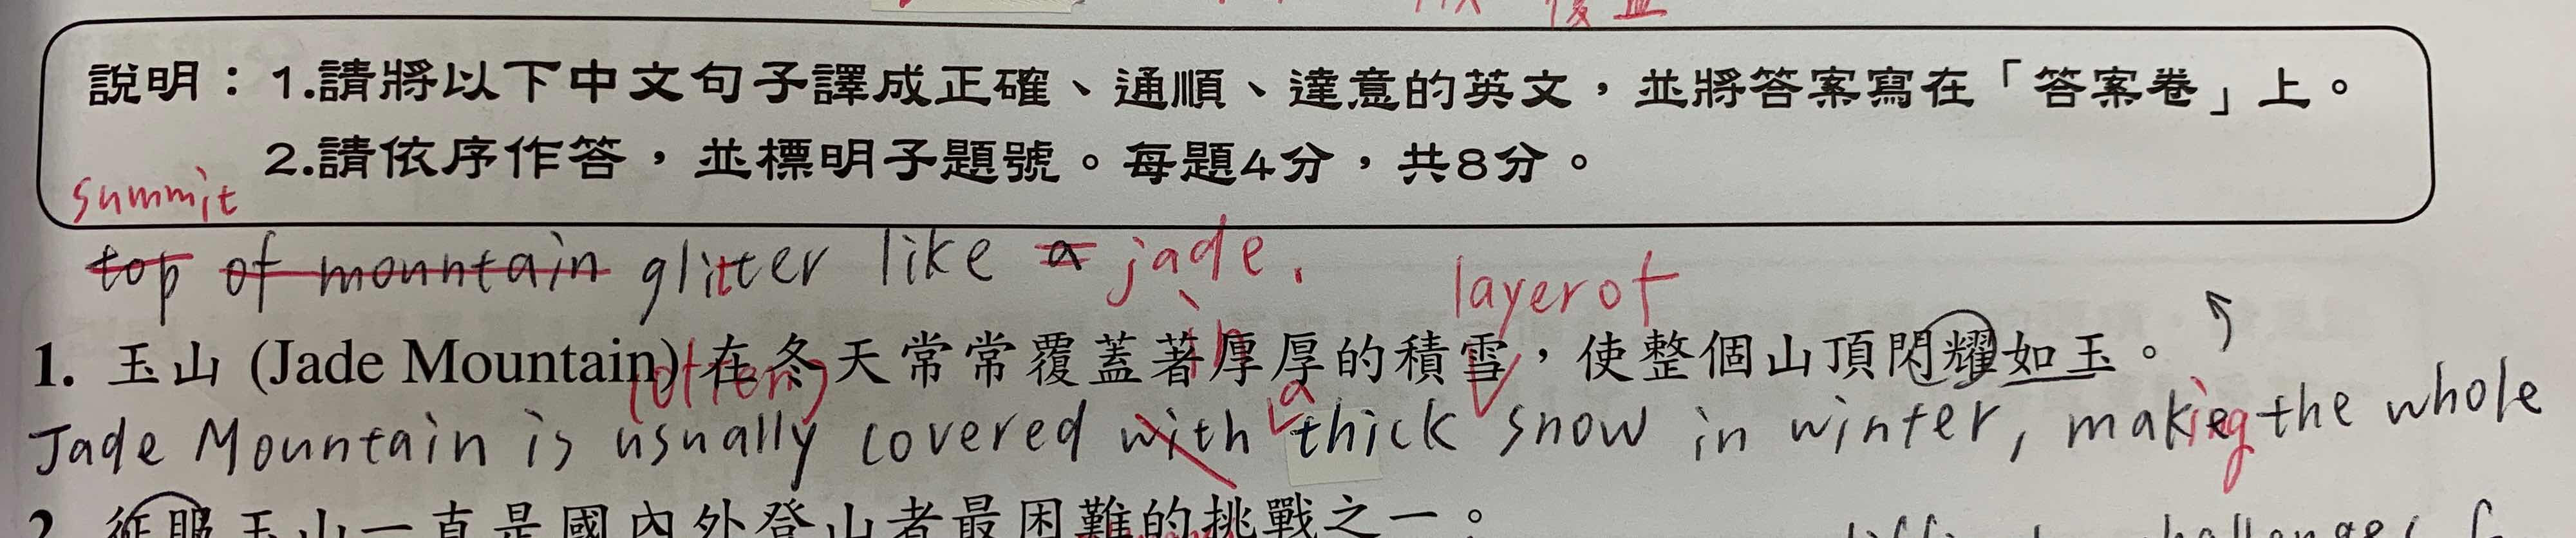 覆蓋
說明：1.請將以下中文句子譯成正確、通順、達意的英文，並將答案寫在「答案卷」上。
2.請依序作答，並標明子題號。每題4分，共8分。
summit
top of mountain glitter like a jade.
layer of
1. 玉山 (Jade Mountain) 在冬天常常覆蓋著厚厚的積雪，使整個山頂閃耀如玉。
(often) in a
Jade Mountain is usually covered with thick snow in winter, making the whole
2. 征服玉山一直是國內外登山者最困難的挑戰之一。